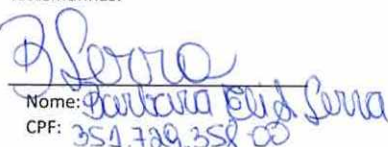 B Serra
Nome: Barbara Serra
CPF: 351.729.358-00